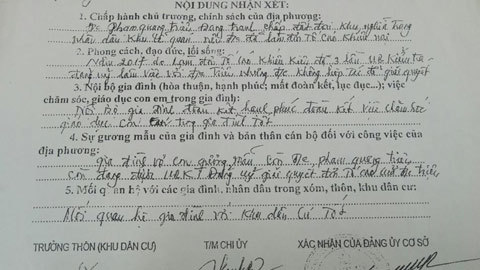 NỘI DUNG NHẬN XÉT:
1. Chấp hành chủ trương, chính sách của địa phương:
Đ/c Phạm Quang Triều Đang tranh chấp đất đai khu nghĩa trang
nhân dân Khu
2. Phong cách, đạo đức, lối sống:
Năm 2017 do làm đơn Tố cáo
đảng uỷ làm việc với Đ/c Triều nhưng đ/c không hợp tác để giải quyết
3. Nội bộ gia đình (hòa thuận, hạnh phúc; mất đoàn kết, lục đục...); việc
chăm sóc, giáo dục con em trong gia đình:
Nội bộ gia đình đoàn kết, hạnh phúc đoàn kết việc chăm sóc
giáo dục con trong gia đình Tốt
4. Sự gương mẫu của gia đình và bản thân cán bộ đối với công việc
của địa phương:
gia đình vợ con gương mẫu còn đ/c phạm quang triều
còn đang được UBKT Đảng uỷ giải quyết đơn Tố cáo của đ/c triều
5. Mối quan hệ với các gia đình, nhân dân trong xóm, thôn, khu dân cư:
Mối quan hệ gia đình với khu dân cư Tốt
TRƯỞNG THÔN (KHU DÂN CƯ) T/M CHI ỦY XÁC NHẬN CỦA ĐẢNG ỦY CƠ SỞ